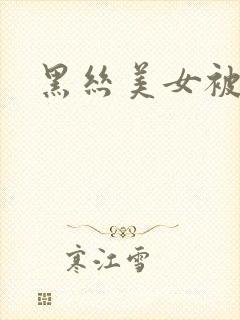 黑丝美女被
寒江雪